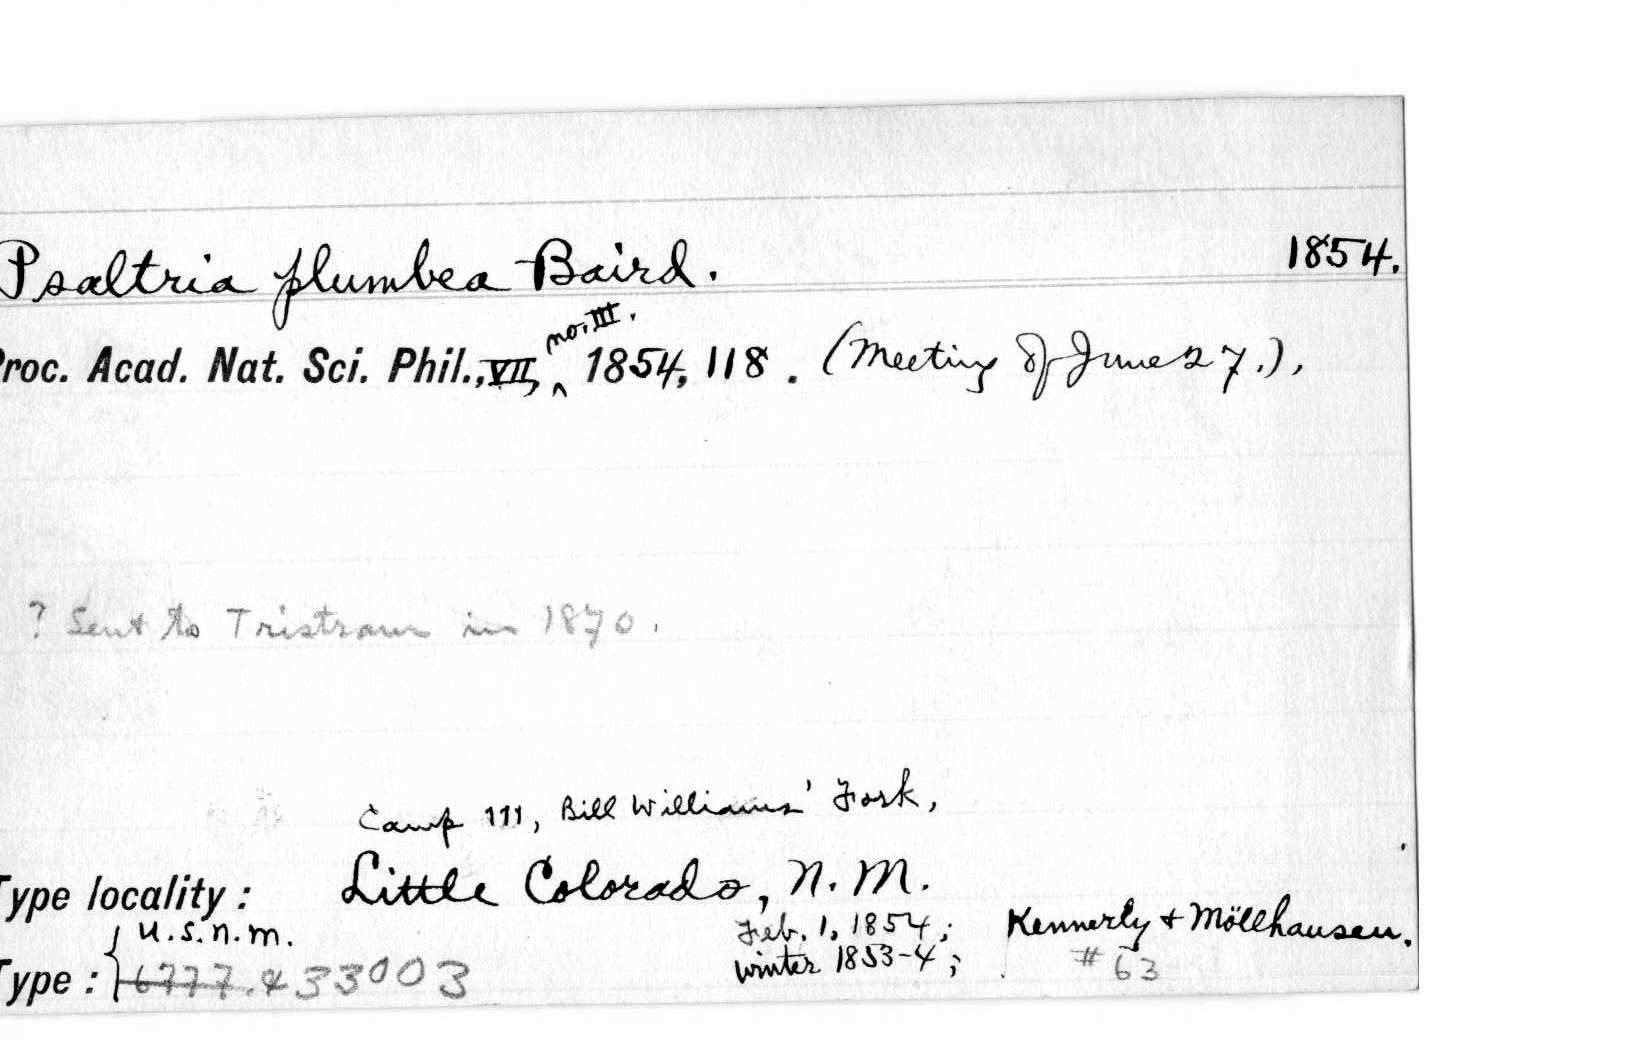 Psaltria plumbea Baird. 1854.
no. III.
Proc. Acad. Nat. Sci. Phil., VII, ^ 1854, 118. (Meeting of June 27.),
? Sent to Tristram in 1870.
Camp 111, Bill Williams' Fork,
Type locality: Little Colorado, N. M.
U.S.N.M. Feb. 1, 1854; Kennerly & Möllhausen.
Type: 6777. & 33003 winter 1853-4; #63